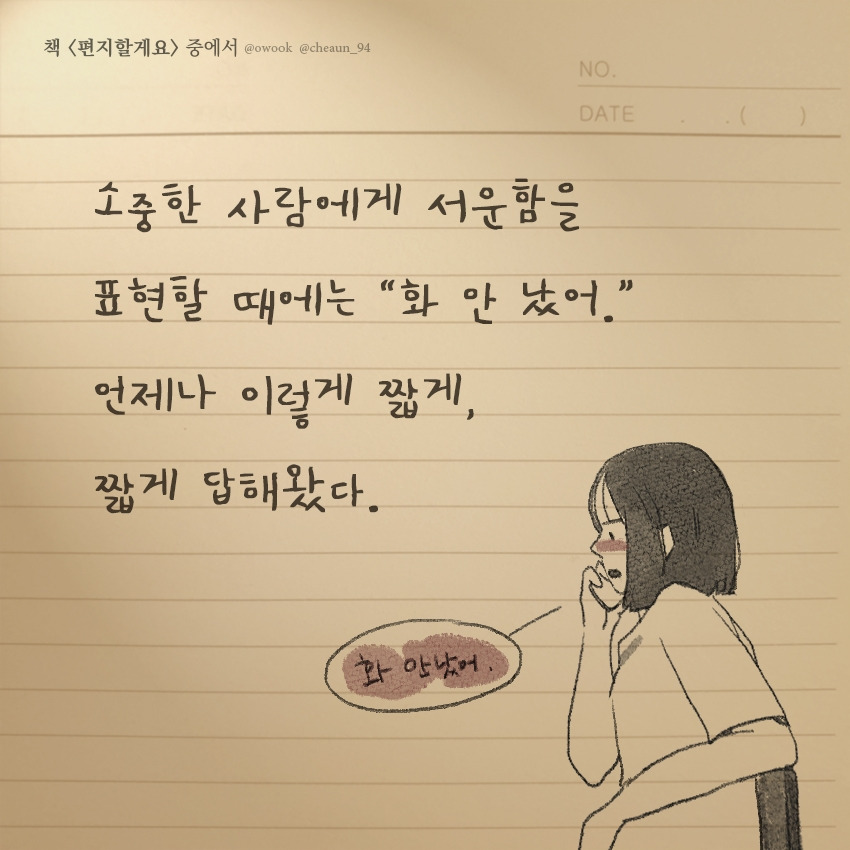 책 <편지할게요> 중에서 @owook @cheaun_94
NO.
DATE . . ( )
소중한 사람에게 서운함을
표현할 때에는 “화 안 났어.”
언제나 이렇게 짧게,
짧게 답해왔다.
화 안났어.